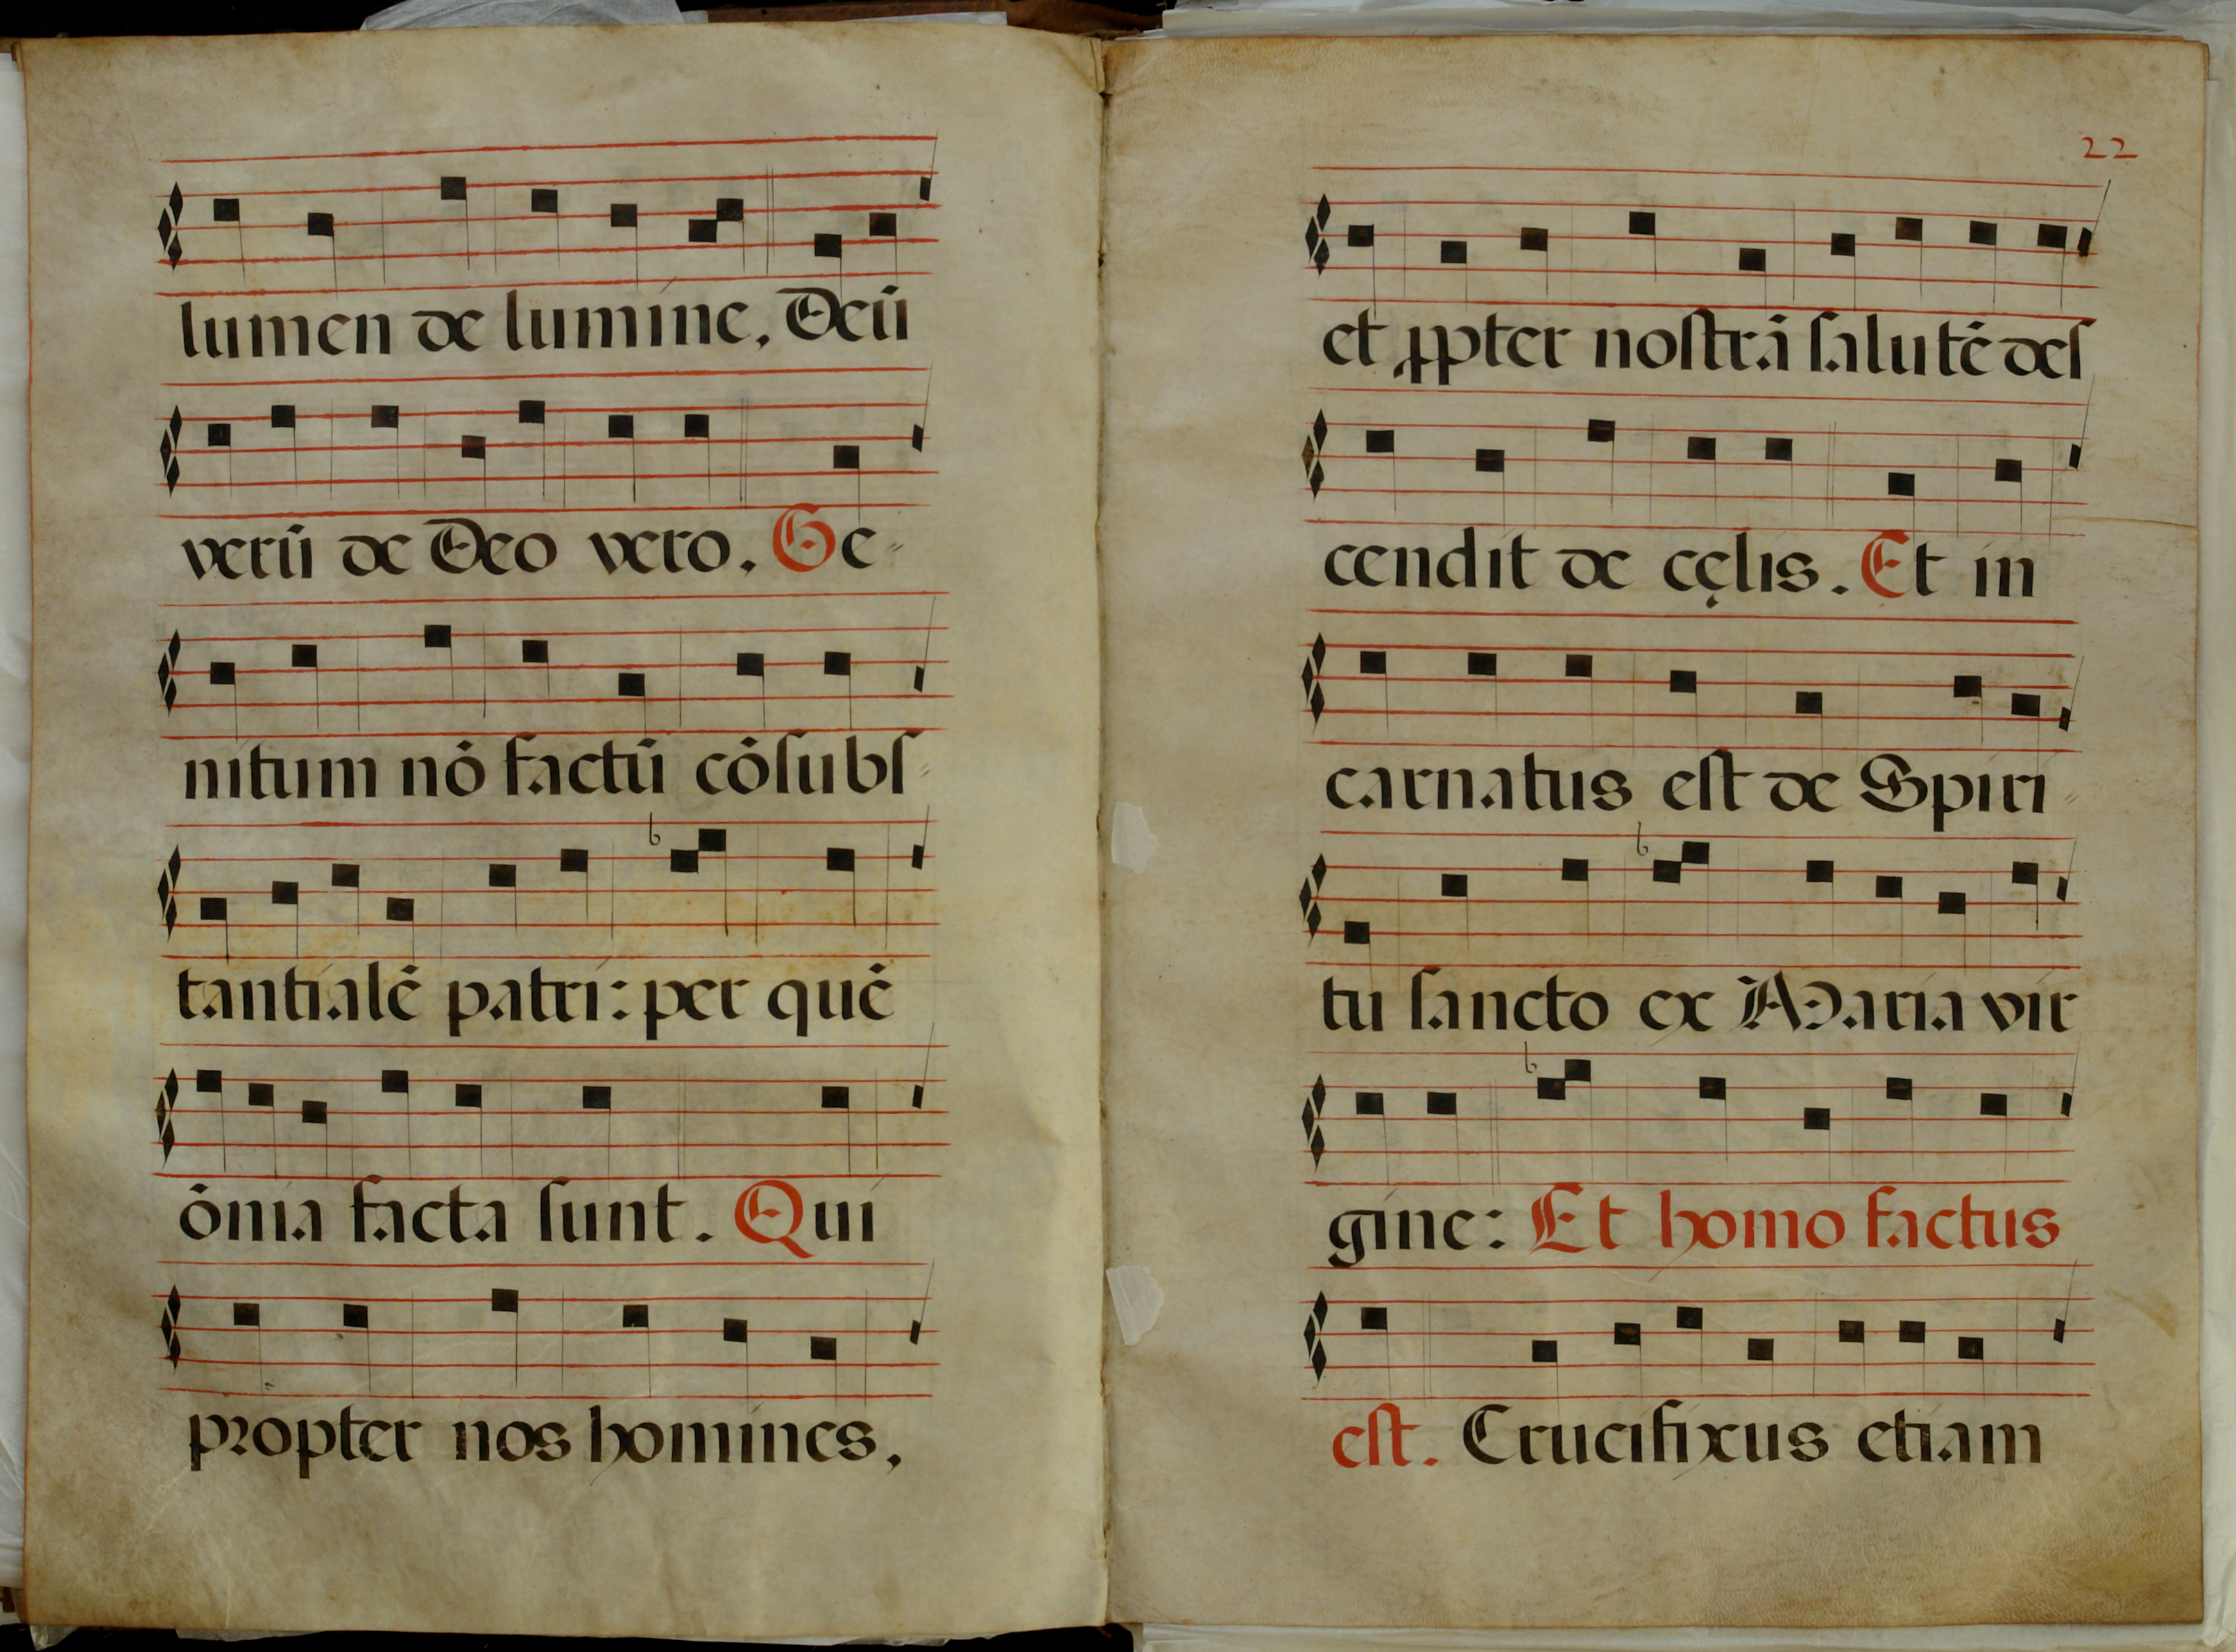 lumen de lumine. Deū
verū de Deo vero. Ge-
nitum nō factū cōſubſ-
tantialē patri: per quē
ōnia facta ſunt. Qui
propter nos homines,
22
et ꝓpter noſtrā ſalutē deſ
cendit de cęlis. Et in
carnatus eſt de Spiri-
tu ſancto ex Maria vir
gine: Et homo factus
eſt. Crucifixus etiam